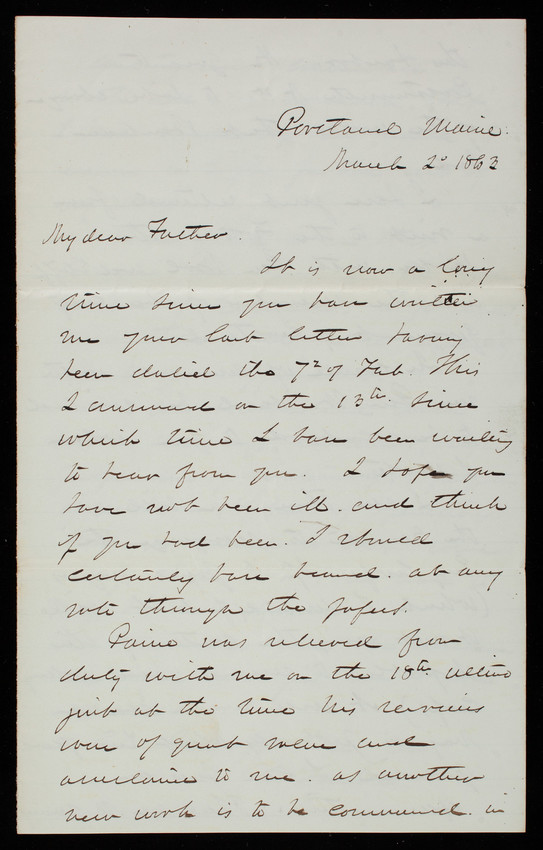 Portland Maine.
March 2d 1863
My dear Father.
It is now a long
time since you have written
me your last letter having
been dated the 7th of Feb. This
I answered on the 13th. since
which time I have been waiting
to hear from you. I hope you
have not been ill. and think
if you had been. I should
certainly have heard. at any
rate through the papers.
Paine was relieved from
duty with me on the 18th ultimo
just at the time his services
were of great value and
assistance to me. as another
new work is to be commenced. in